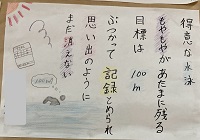 得意な水泳
もやもやがあたまに残る
目標は 100m
ぶつかって記録とめられ
思い出のように
まだ消えない